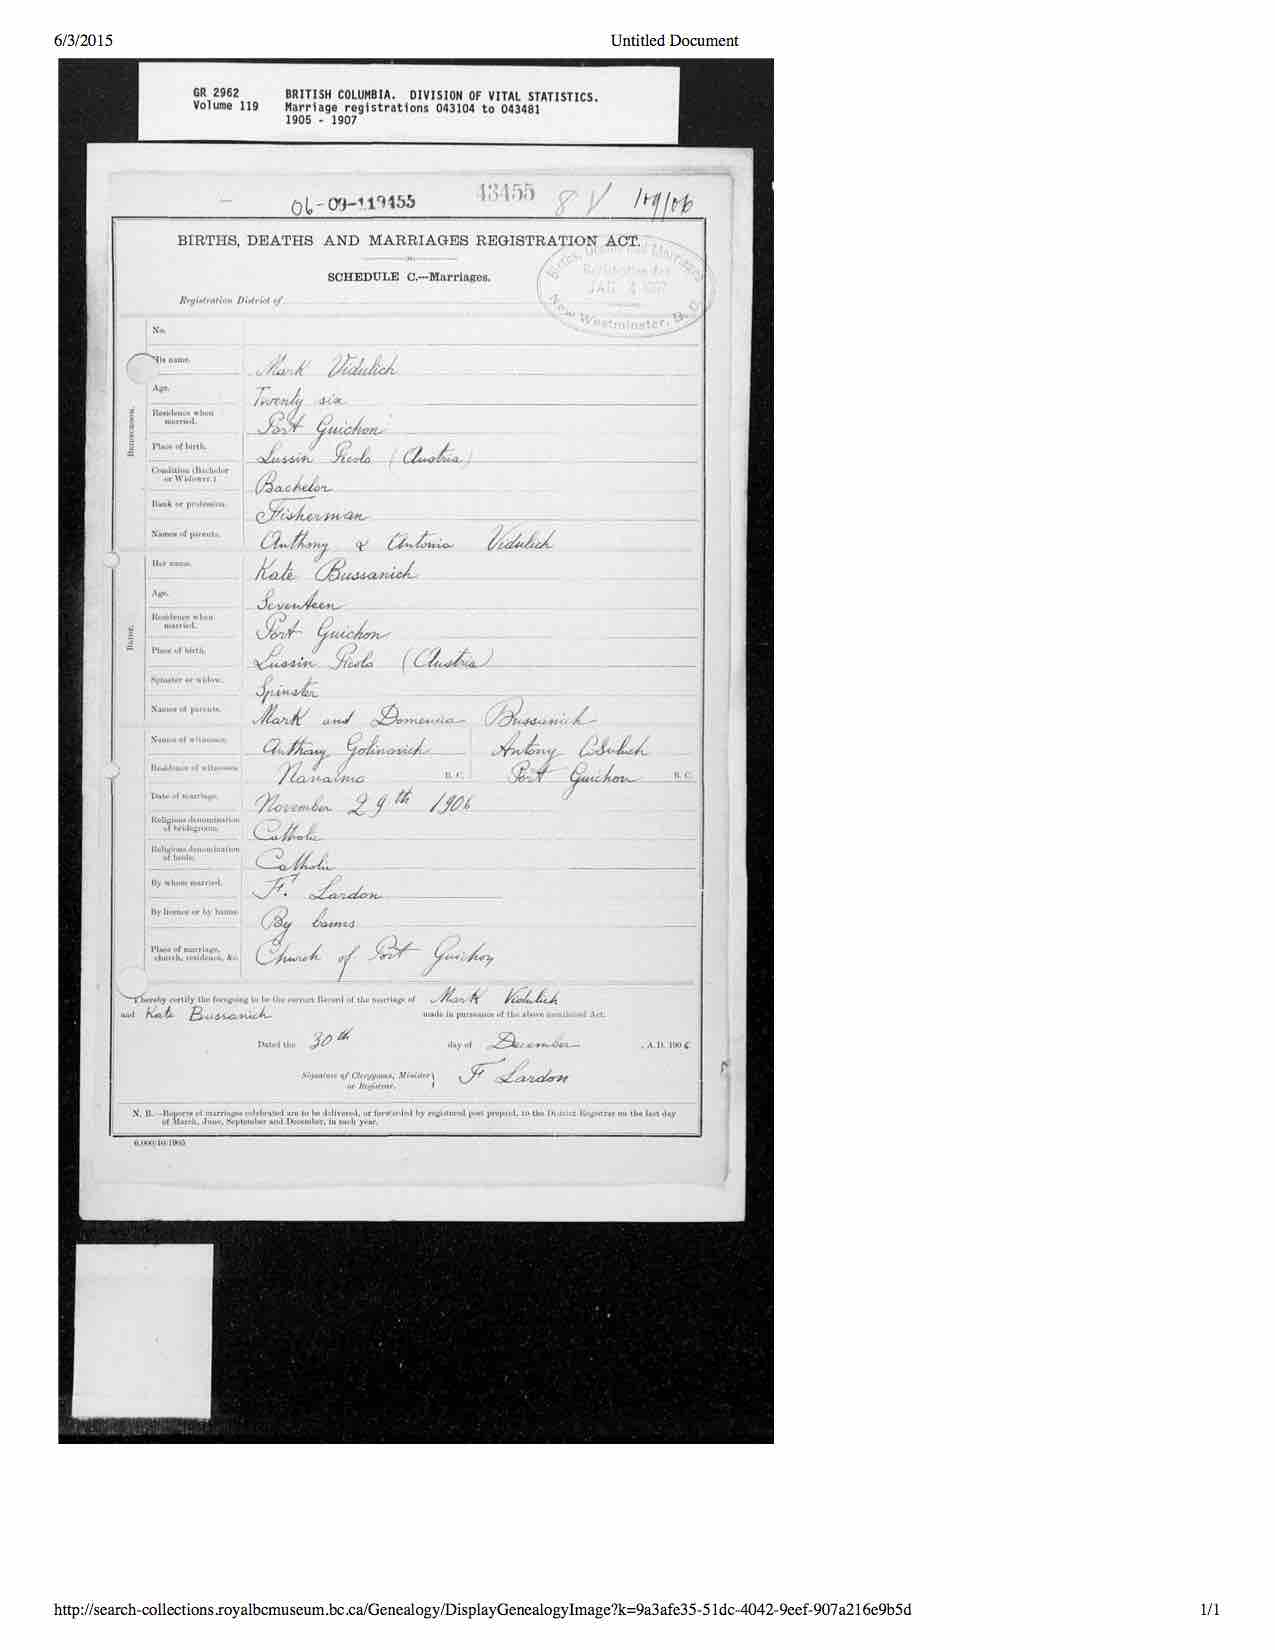 6/3/2015 Untitled Document
GR 2962 BRITISH COLUMBIA. DIVISION OF VITAL STATISTICS.
Volume 119 Marriage registrations 043104 to 043481
1905 - 1907
06-09-119455 43455 8
BIRTHS, DEATHS AND MARRIAGES REGISTRATION ACT.
SCHEDULE C.—Marriages.
Births, Deaths and Marriages
Registration Act
JAN 4 1907
New Westminster, B. C.
Registration District of
No.
BRIDEGROOM.
His name. Mark Vidulich
Age. Twenty six
Residence when married. Port Guichon
Place of birth. Lussin Picolo (Austria)
Condition (Bachelor or Widower.) Bachelor
Rank or profession. Fisherman
Names of parents. Anthony & Antonia Vidulich
BRIDE.
Her name. Kate Bussanich
Age. Seventeen
Residence when married. Port Guichon
Place of birth. Lussin Picolo (Austria)
Spinster or widow. Spinster
Names of parents. Mark and Domenica Bussanich
Names of witnesses. Anthony Antony
Residence of witnesses. Nanaimo B. C. Port Guichon B. C.
Date of marriage. November 29th 1906
Religious denomination of bridegroom. Catholic
Religious denomination of bride. Catholic
By whom married. Fr. Lardon
By licence or by banns. By banns
Place of marriage, church, residence, &c. Church of Port Guichon
I hereby certify the foregoing to be the correct Record of the marriage of Mark Vidulich
and Kate Bussanich made in pursuance of the above mentioned Act.
Dated the 30th day of December , A.D. 1906
Signature of Clergyman, Minister or Registrar. F Lardon
N. B.—Reports of marriages celebrated are to be delivered, or forwarded by registered post prepaid, to the District Registrar on the last day
of March, June, September and December, in each year.
6,000/10/1905
http://search-collections.royalbcmuseum.bc.ca/Genealogy/DisplayGenealogyImage?k=9a3afe35-51dc-4042-9eef-907a216e9b5d 1/1